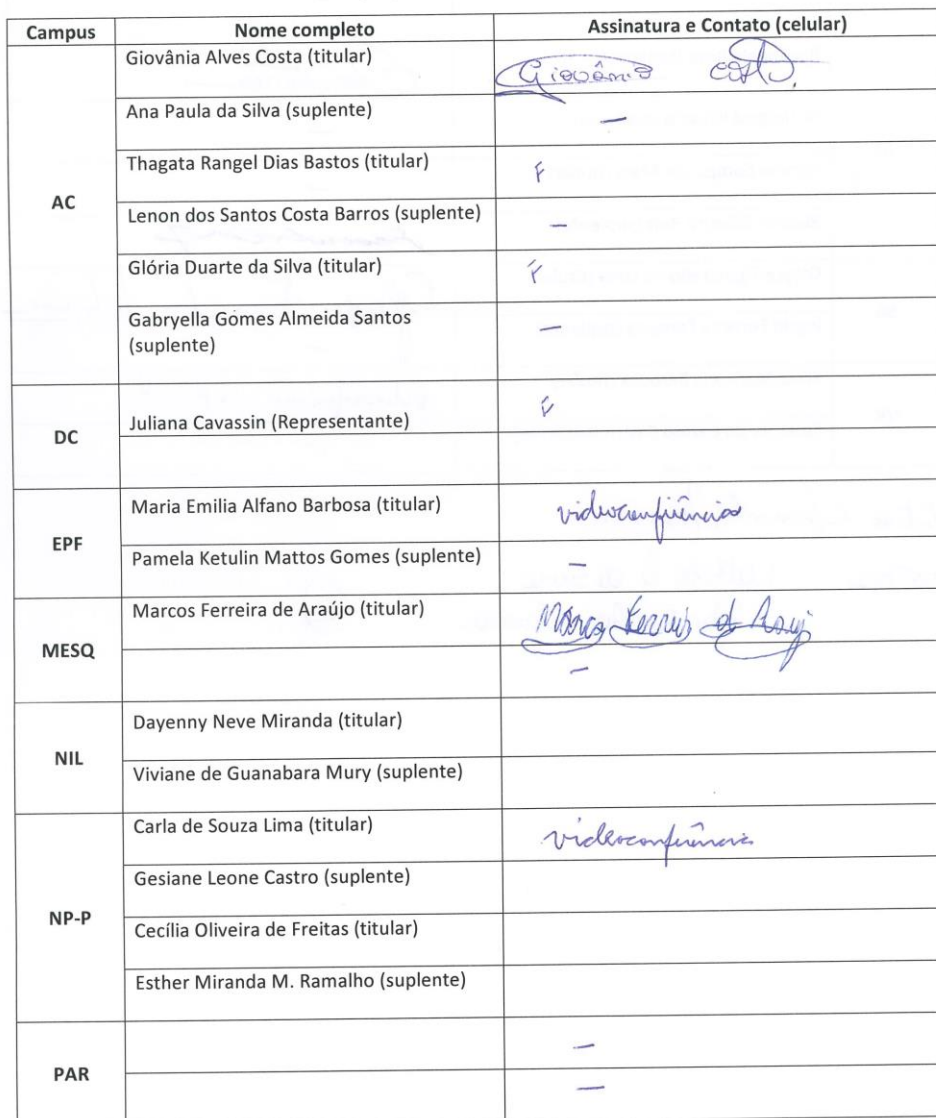 Campus Nome completo Assinatura e Contato (celular)
AC
Giovânia Alves Costa (titular) Giovânia Costa
Ana Paula da Silva (suplente) —
Thagata Rangel Dias Bastos (titular) F
Lenon dos Santos Costa Barros (suplente) —
Glória Duarte da Silva (titular) F
Gabryella Gomes Almeida Santos —
(suplente)
DC
Juliana Cavassin (Representante) F
EPF
Maria Emilia Alfano Barbosa (titular) videoconferência
Pamela Ketulin Mattos Gomes (suplente) —
MESQ
Marcos Ferreira de Araújo (titular) Marcos Ferreira de Araujo
—
NIL
Dayenny Neve Miranda (titular)
Viviane de Guanabara Mury (suplente)
NP-P
Carla de Souza Lima (titular) videoconferência
Gesiane Leone Castro (suplente)
Cecília Oliveira de Freitas (titular)
Esther Miranda M. Ramalho (suplente)
PAR
—
—